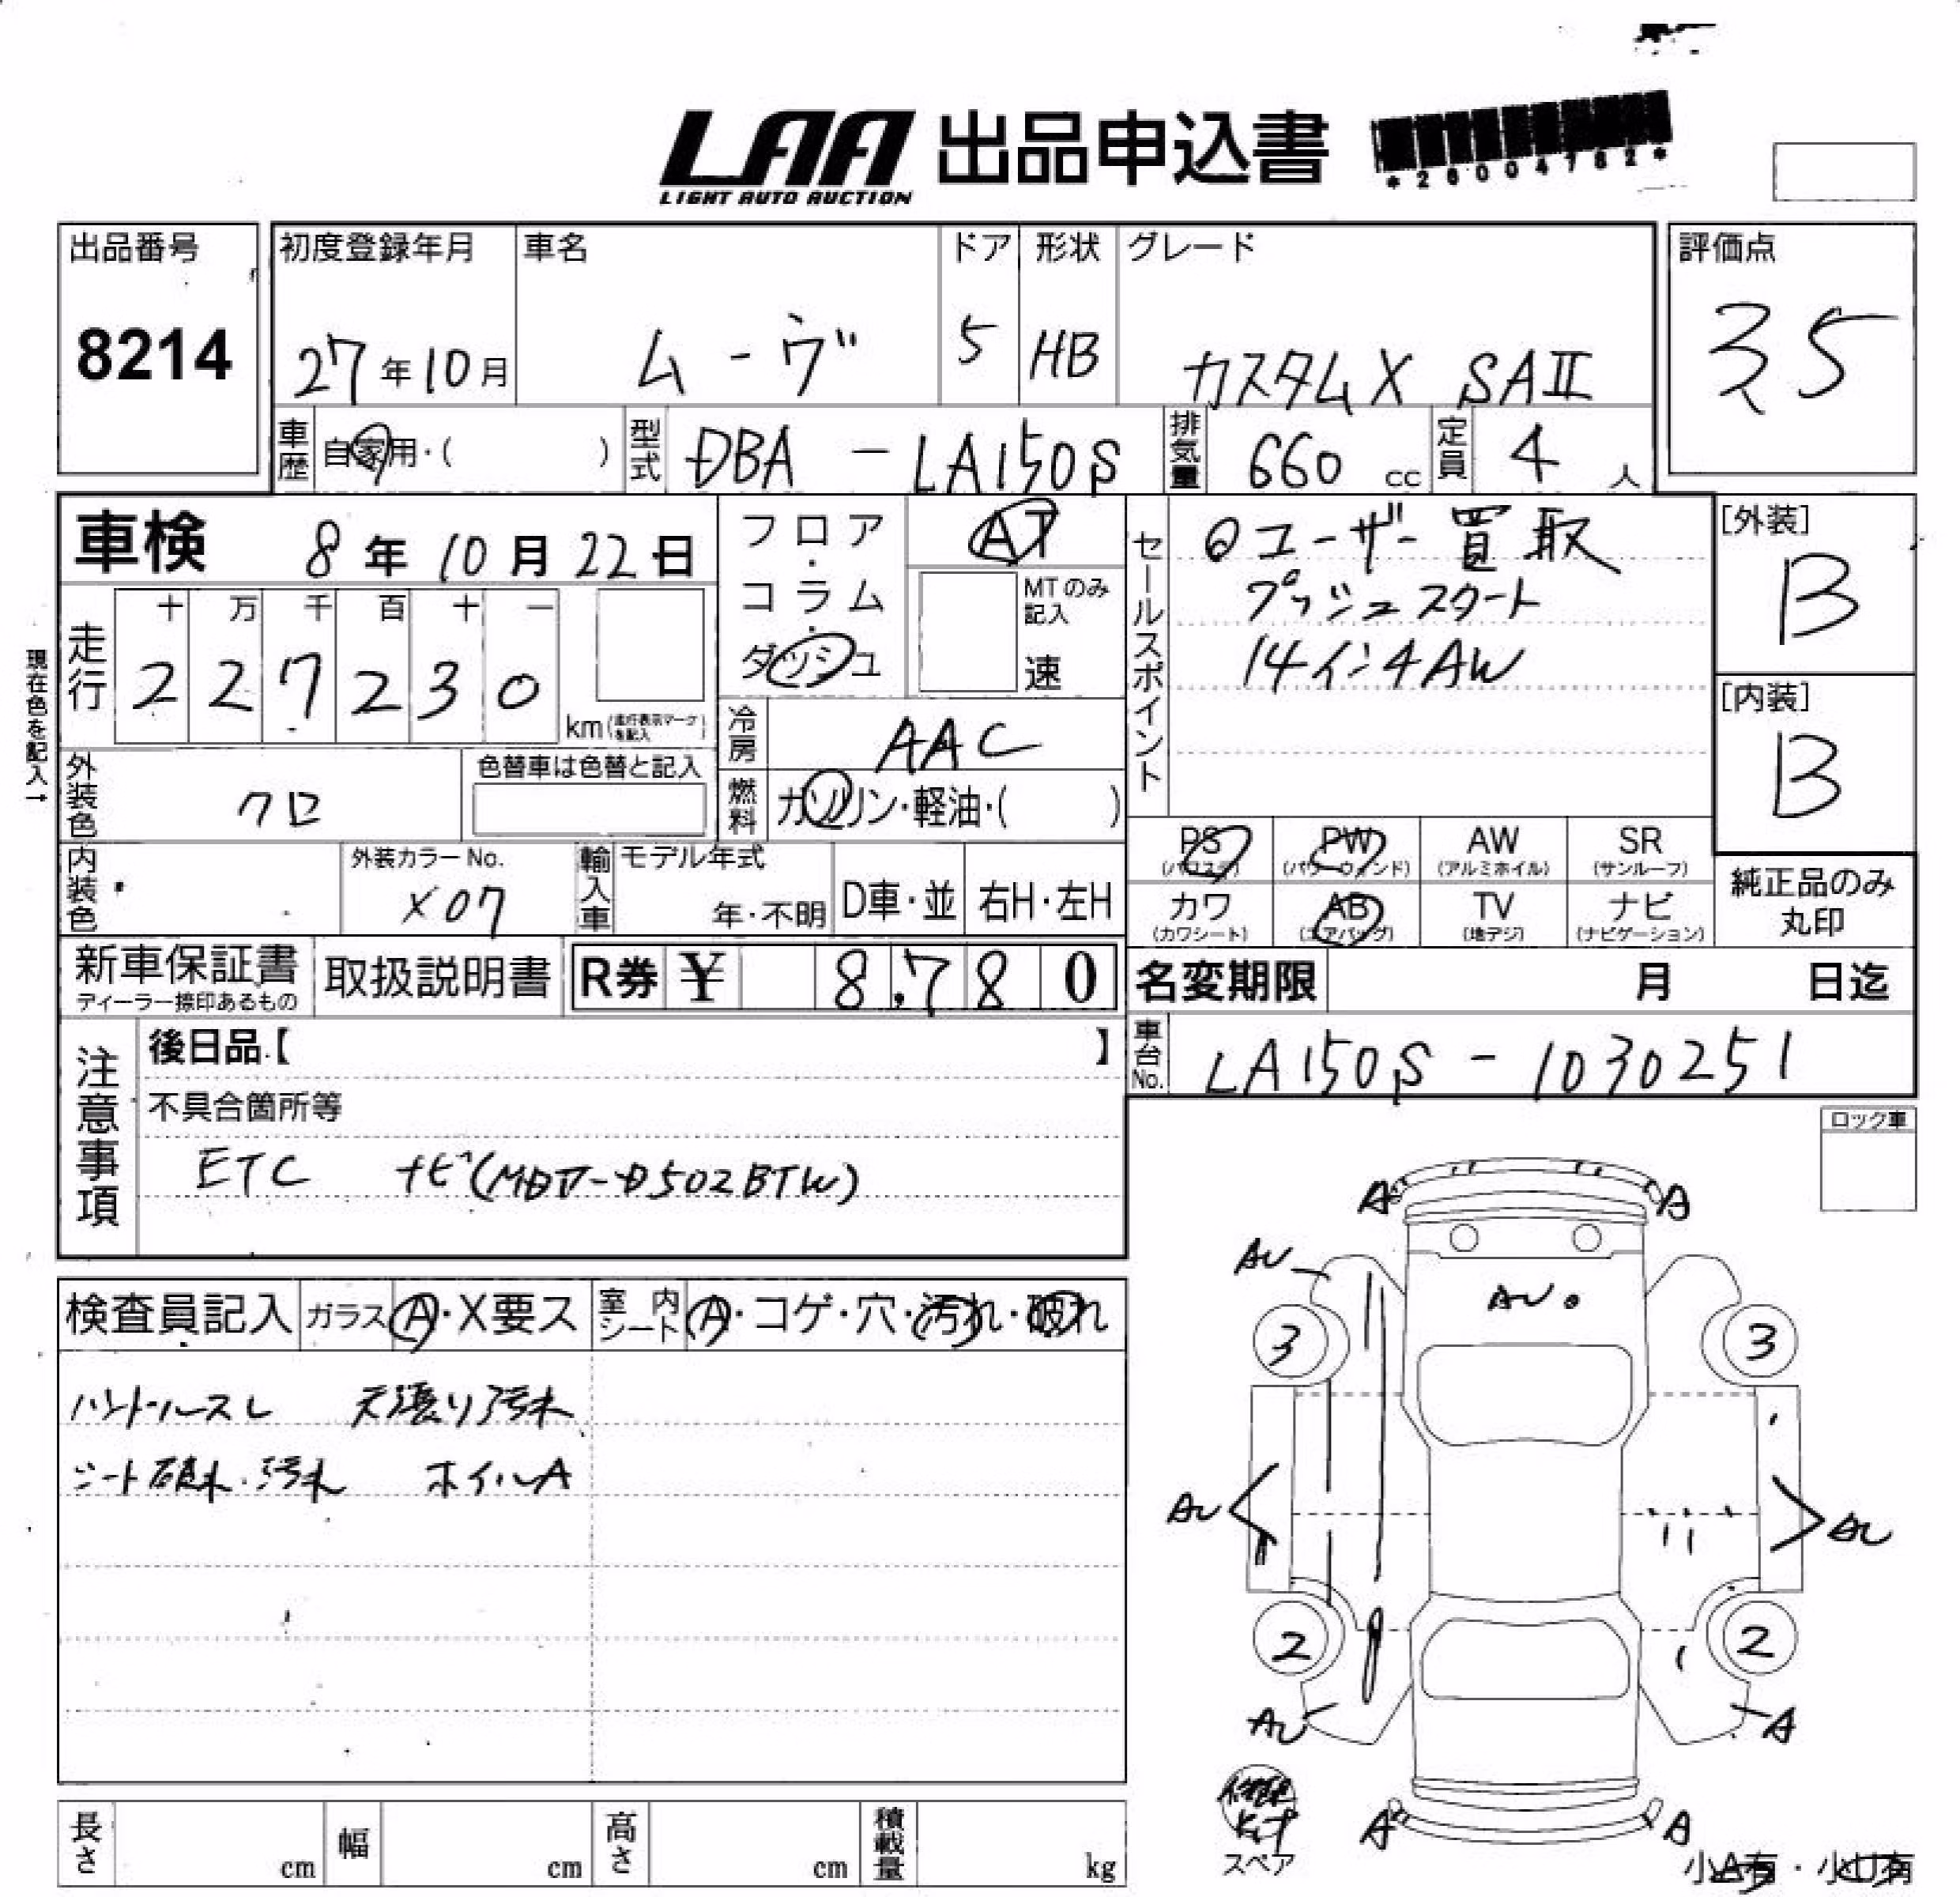 LAA 出品申込書
LIGHT AUTO AUCTION
*26004782*
出品番号
8214
初度登録年月
27年10月
車名
ムーヴ
ドア
5
形状
HB
グレード
カスタムX SAⅡ
評価点
35
車歴
自家用・( )
型式
DBA - LA150S
排気量
660 cc
定員
4 人
車検 8年10月22日
フロア・コラム・ダッシュ
AT
MTのみ記入
速
セールスポイント
@ユーザー買取
プッシュスタート
14インチAW
[外装]
B
[内装]
B
現在色を記入→
走行
十 万 千 百 十 一
2 2 7 2 3 0
km(走行表示マークを記入)
冷房
AAC
外装色
クロ
色替車は色替と記入
燃料
ガソリン・軽油・( )
PS (パワステ)
PW (パワーウィンド)
AW (アルミホイル)
SR (サンルーフ)
カワ (カワシート)
AB (エアバッグ)
TV (地デジ)
ナビ (ナビゲーション)
純正品のみ丸印
内装色
外装カラーNo.
X07
輸入車
モデル年式
年・不明
D車・並
右H・左H
新車保証書
ディーラー捺印あるもの
取扱説明書
R券 ¥ 8,780
名変期限 月 日迄
車台No.
LA150S - 1030251
注意事項
後日品【 】
不具合箇所等
ETC ナビ( D502BTW)
ロック車
検査員記入
ガラス A・X要ス
室内シート A・コゲ・穴・汚れ・破れ
ハンドルスレ 天張り汚れ
シート破れ・汚れ ホイルA
A A
AU
AU
3 3
AU AU
2 2
AU A
A A
スペア
小A有・小U有
長さ cm
幅 cm
高さ cm
積載量 kg